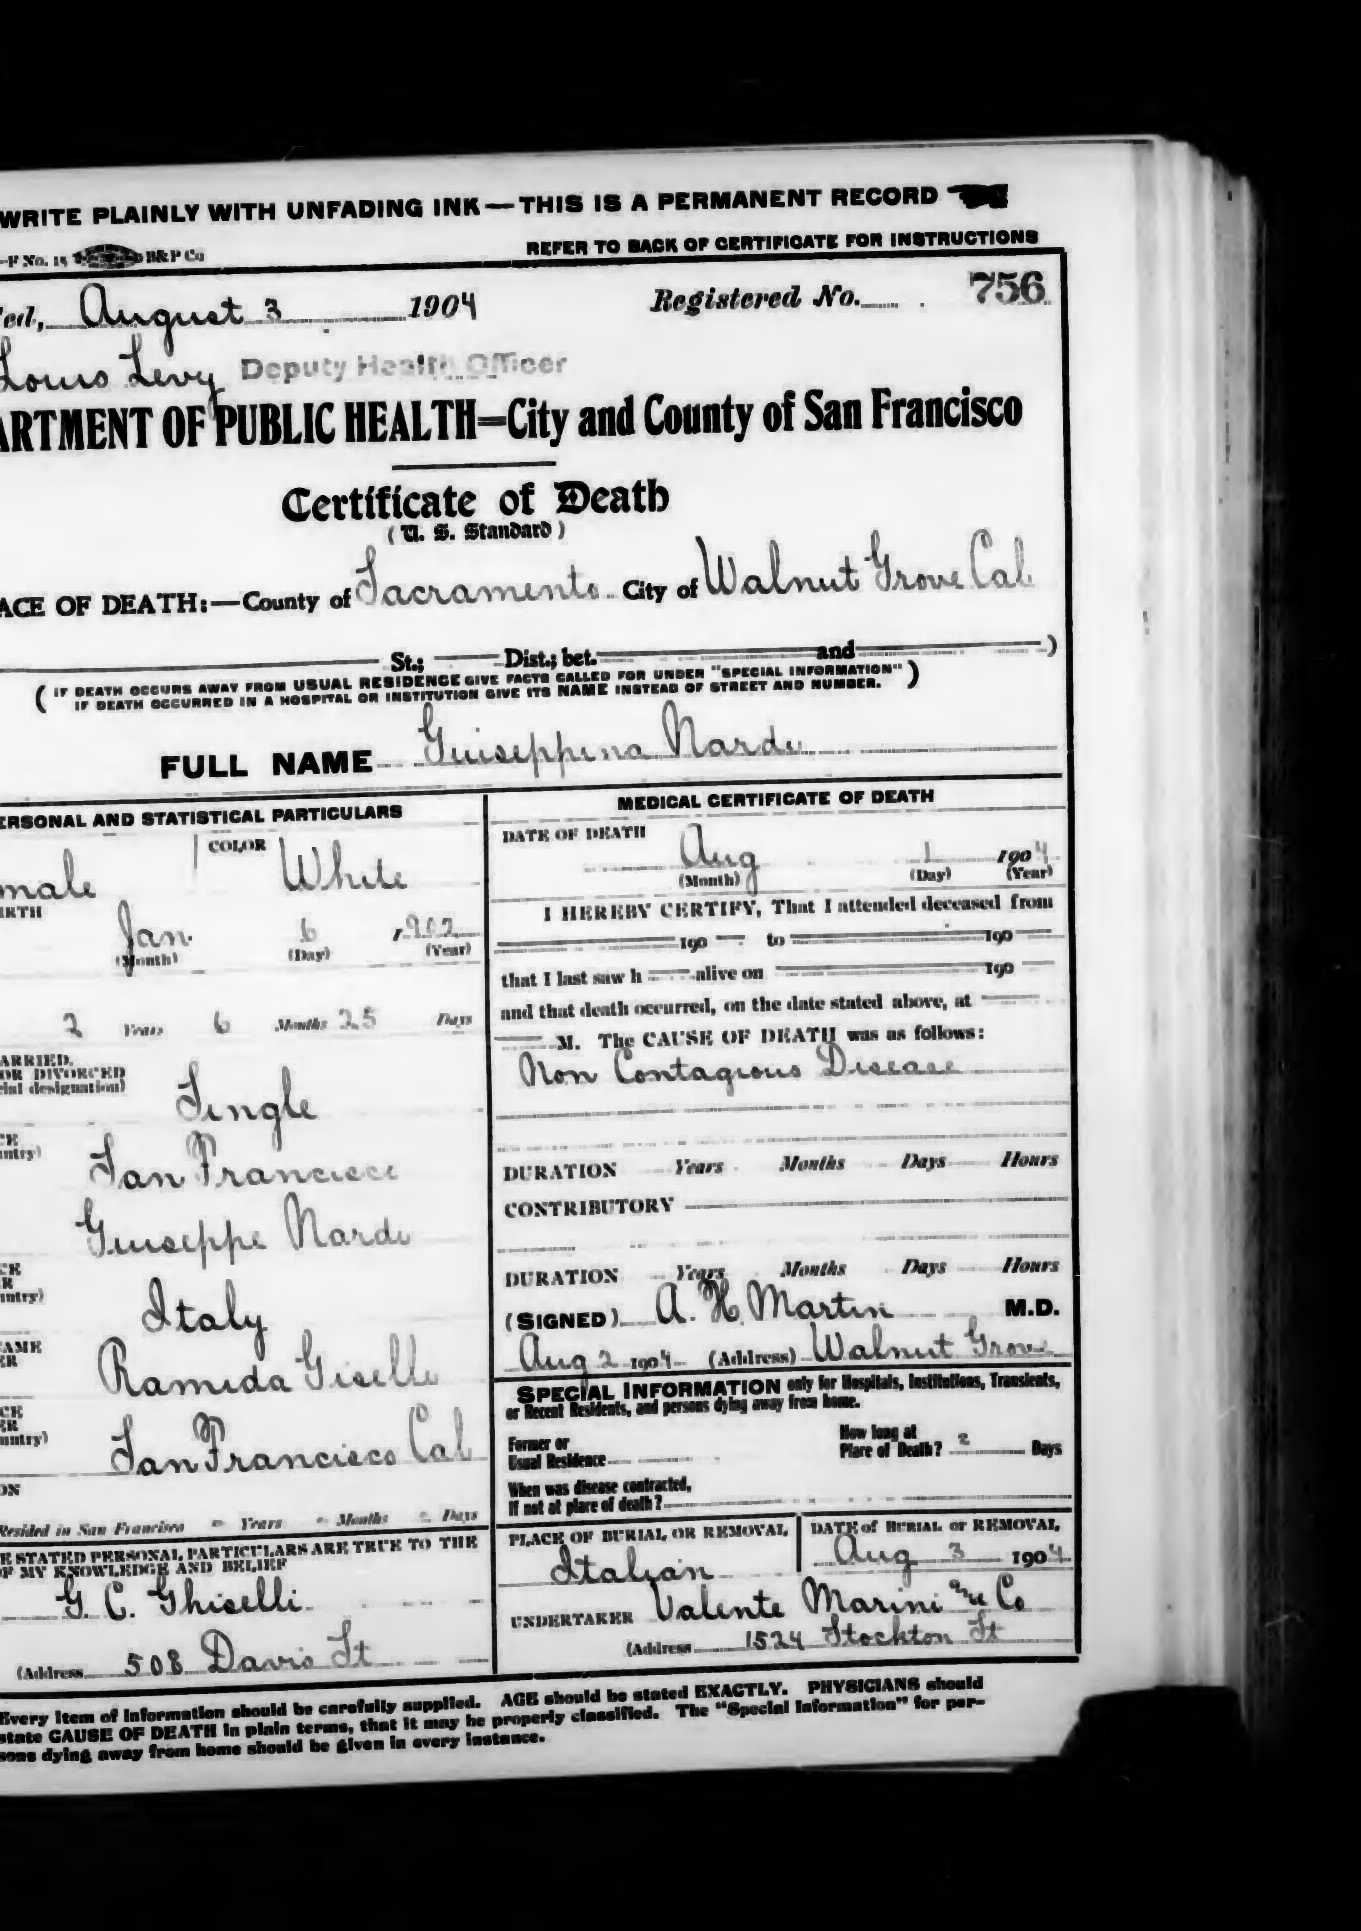 WRITE PLAINLY WITH UNFADING INK — THIS IS A PERMANENT RECORD
REFER TO BACK OF CERTIFICATE FOR INSTRUCTIONS
-F No. 15 B&P Co
ed, August 3 1904 Registered No. 756
Louis Levy Deputy Health Officer
ARTMENT OF PUBLIC HEALTH=City and County of San Francisco
Certificate of Death
(U. S. Standard)
ACE OF DEATH:—County of Sacramento City of Walnut Grove Cal
St.; Dist.; bet. and )
( IF DEATH OCCURS AWAY FROM USUAL RESIDENCE GIVE FACTS CALLED FOR UNDER "SPECIAL INFORMATION" )
IF DEATH OCCURRED IN A HOSPITAL OR INSTITUTION GIVE ITS NAME INSTEAD OF STREET AND NUMBER.
FULL NAME Guiseppina Nardi
ERSONAL AND STATISTICAL PARTICULARS
male COLOR White
IRTH
Jan 6 1902
(Month) (Day) (Year)
2 Years 6 Months 25 Days
ARRIED,
OR DIVORCED
cial designation)
Single
CE
untry)
San Francisco
Guiseppe Nardi
CE
R
untry)
Italy
AME
ER
Ramida Giselle
CE
ER
untry)
San Francisco Cal
ON
Resided in San Francisco Years Months Days
E STATED PERSONAL PARTICULARS ARE TRUE TO THE
OF MY KNOWLEDGE AND BELIEF
G. C. Ghiselli
(Address 508 Davis St
MEDICAL CERTIFICATE OF DEATH
DATE OF DEATH
Aug 1 1904
(Month) (Day) (Year)
I HEREBY CERTIFY, That I attended deceased from
190 to 190
that I last saw h alive on 190
and that death occurred, on the date stated above, at
M. The CAUSE OF DEATH was as follows:
Non Contagious Disease
DURATION Years Months Days Hours
CONTRIBUTORY
DURATION Years Months Days Hours
(SIGNED) A. H. Martin M.D.
Aug 2 1904 (Address) Walnut Grove
SPECIAL INFORMATION only for Hospitals, Institutions, Transients,
or Recent Residents, and persons dying away from home.
Former or
Usual Residence
How long at
Place of Death? 2 Days
When was disease contracted,
If not at place of death?
PLACE OF BURIAL OR REMOVAL
Italian
DATE of BURIAL or REMOVAL
Aug 3 1904
UNDERTAKER Valente Marini and Co
(Address 1524 Stockton St
Every item of information should be carefully supplied. AGE should be stated EXACTLY. PHYSICIANS should
state CAUSE OF DEATH in plain terms, that it may be properly classified. The "Special Information" for per-
sons dying away from home should be given in every instance.